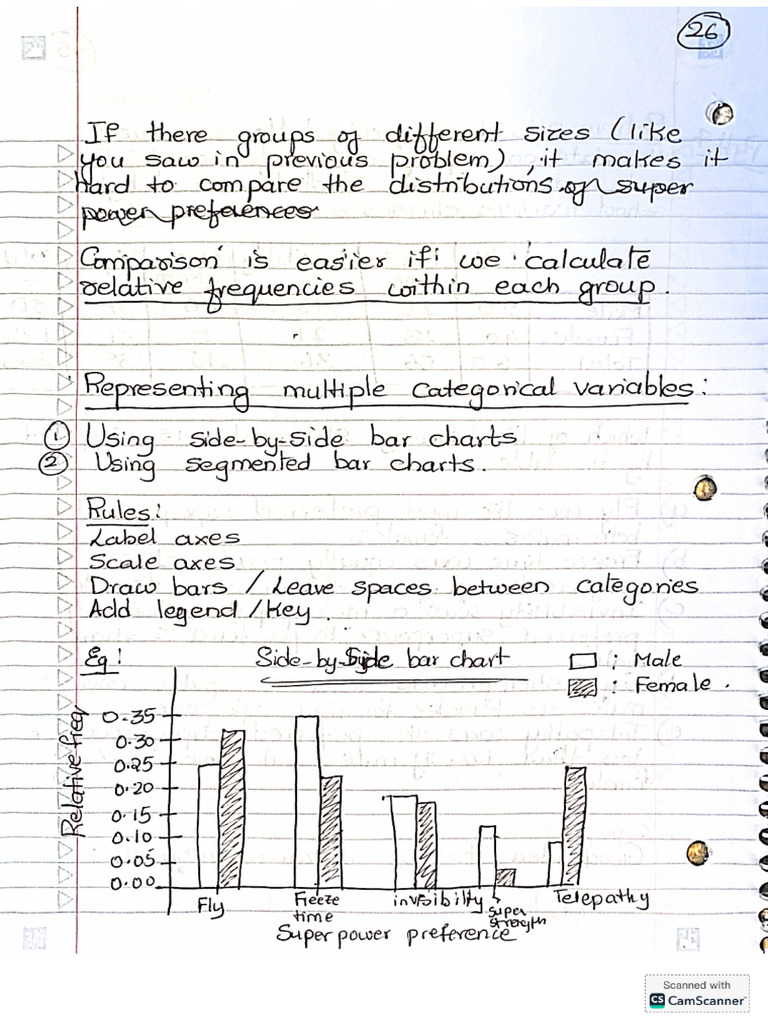 26
If there groups of different sizes (like
you saw in previous problem), it makes it
hard to compare the distributions of super
power preferences
Comparison is easier if we calculate
relative frequencies within each group.
Representing multiple categorical variables:
① Using side-by-side bar charts
② Using segmented bar charts.
Rules:
Label axes
Scale axes
Draw bars / Leave spaces between categories
Add legend/key.
Eg:
Side-by-Side bar chart
: Male
: Female.
Relative freq
0.35
0.30
0.25
0.20
0.15
0.10
0.05
0.00
Fly
Freeze
time
invisibility
Super
strength
Telepathy
Super power preference
Scanned with
CS CamScanner